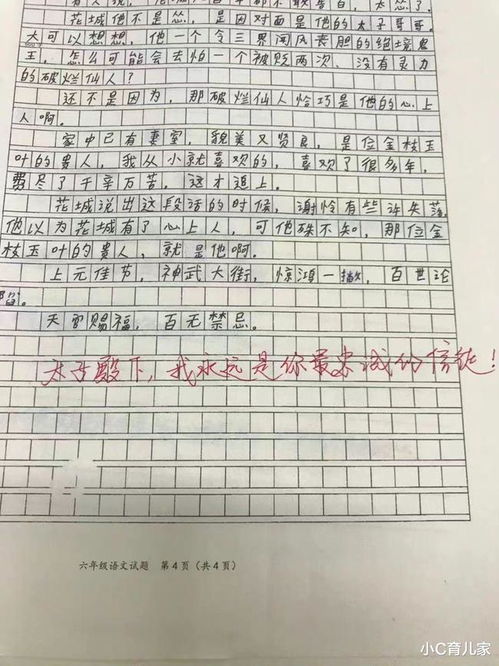 花城他不是怂,是因对面是他的太子哥哥。
大可以想想,他一个令三界闻风丧胆的绝境鬼
王,怎么可能会去怕一个被贬两次、没有灵力
的破烂仙人?
还不是因为,那破烂仙人恰巧是他的心上
人啊。
家中已有妻室,貌美又贤良,是位金枝玉
叶的贵人,我从小就喜欢的,喜欢了很多年,
费尽了千辛万苦,这才追上。
花城说出这段话的时候,谢怜有些许失落
他以为花城有了心上人,可他殊不知,那位金
枝玉叶的贵人,就是他啊。
上元佳节,神武大街,惊鸿一瞥,百世沦
陷。
天官赐福,百无禁忌。
太子殿下,我永远是你最忠诚的信徒!
六年级语文试题 第4页(共4页)
小C育儿家